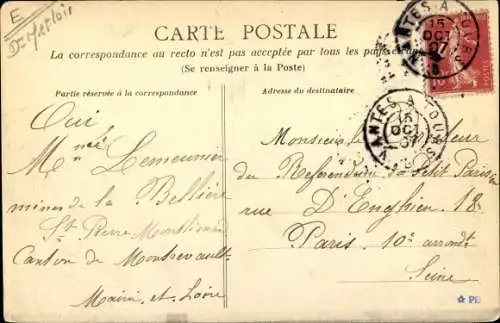 E
CARTE POSTALE
La correspondance au recto n'est pas acceptée par tous les pays
(Se renseigner à la Poste)
Partie réservée à la correspondance
Adresse du destinataire
NANTES A TOURS
15
OCT
07
NANTES A TOURS
15
OCT
07
Oui
Lemeunier
mines de la Bellière
St Pierre Montlimart
Canton de Montrevault
Maine et Loire
Monsieur le
du Referendum du Petit Parisien
rue D'Enghien 18
Paris 10e arrondt
Seine
PB